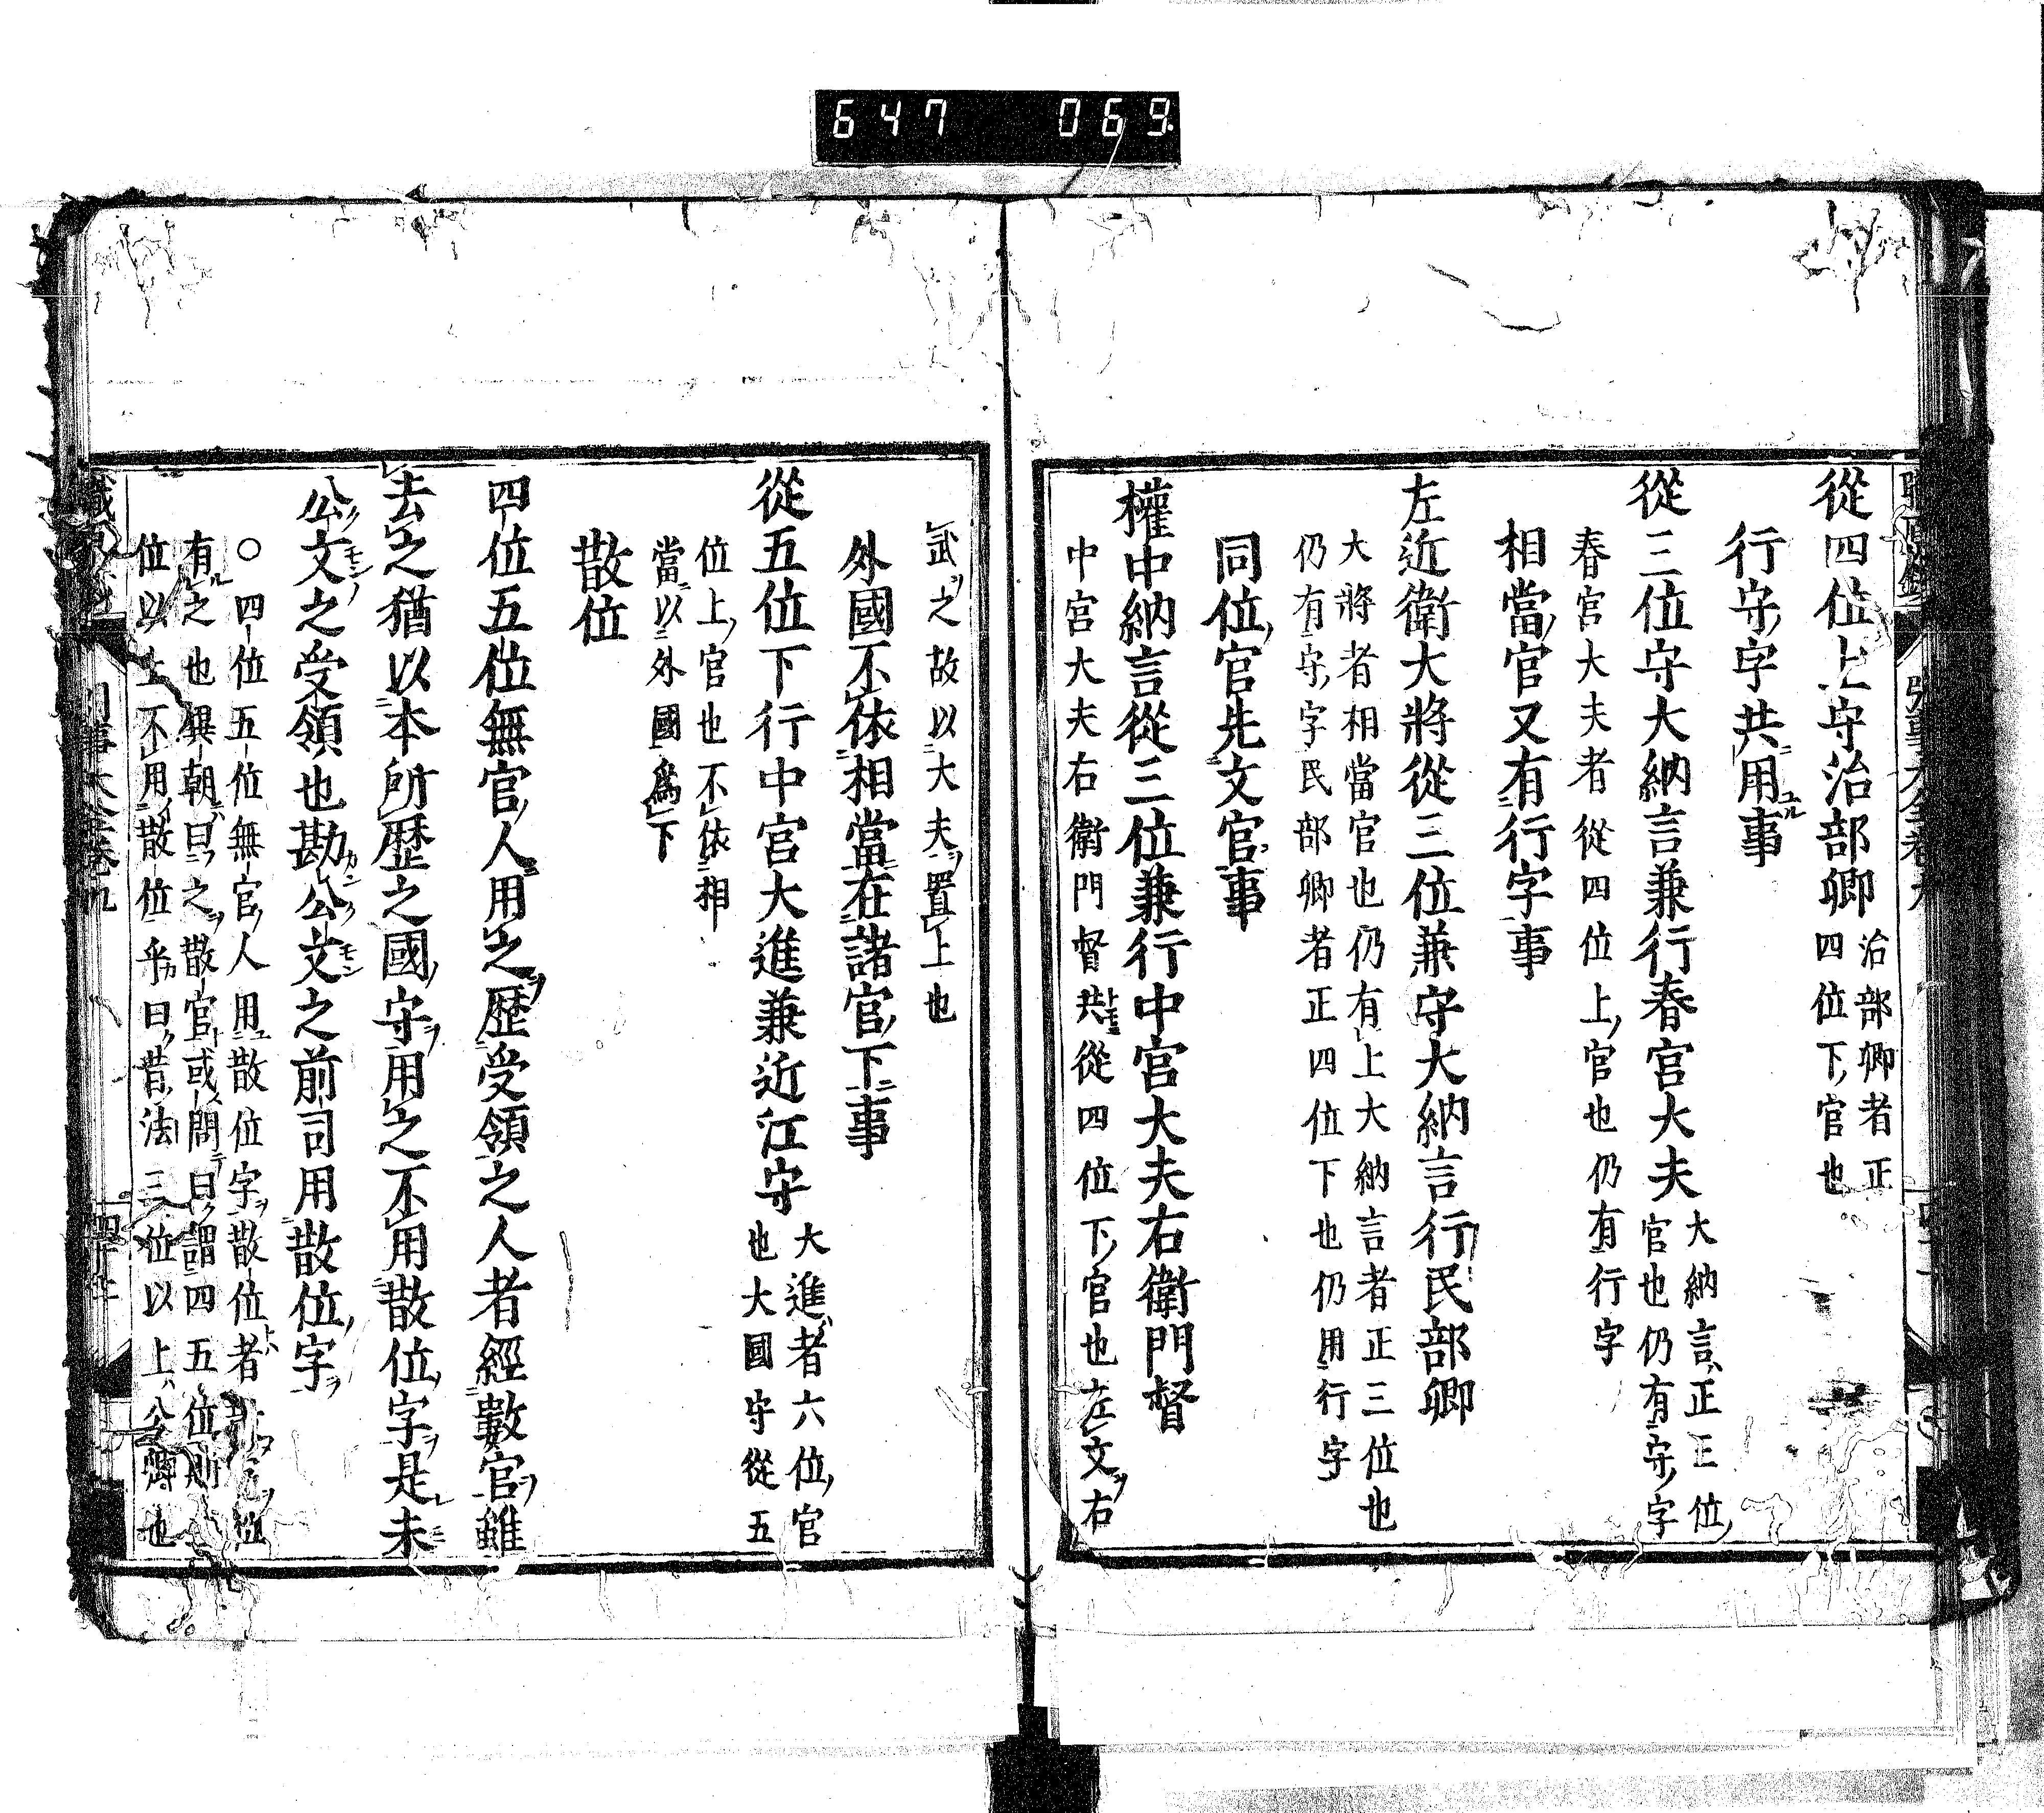 647 069
從四位上守治部卿
治部卿者正
四位下官也
行守字共用事
從三位守大納言兼行春宮大夫
大納言正三位
官也仍有守字
春宮大夫者從四位上官也仍有行字
相當官又有行字事
左近衛大將從三位兼守大納言行民部卿
大將者相當官也仍有上大納言者正三位也
仍有守字民部卿者正四位下也仍用行字
同位官先文官事
權中納言從三位兼行中宮大夫右衛門督
中宮大夫右衛門督共從四位下官也左文右
武之故以大夫置上也
外國不依相當在諸官下事
從五位下行中宮大進兼近江守
大進者六位官
也大國守從五
位上官也不依相
當以外國為下
散位
四位五位無官人用之歷受領之人者經數官雖
去之猶以本所歷之國守用之不用散位字是未
公文之受領也勘公文之前司用散位字
○四位五位無官人用散位字散位者
有之也異朝曰之散官或問曰謂四五位則
位以上不用散位乎曰昔法三位以上公卿也